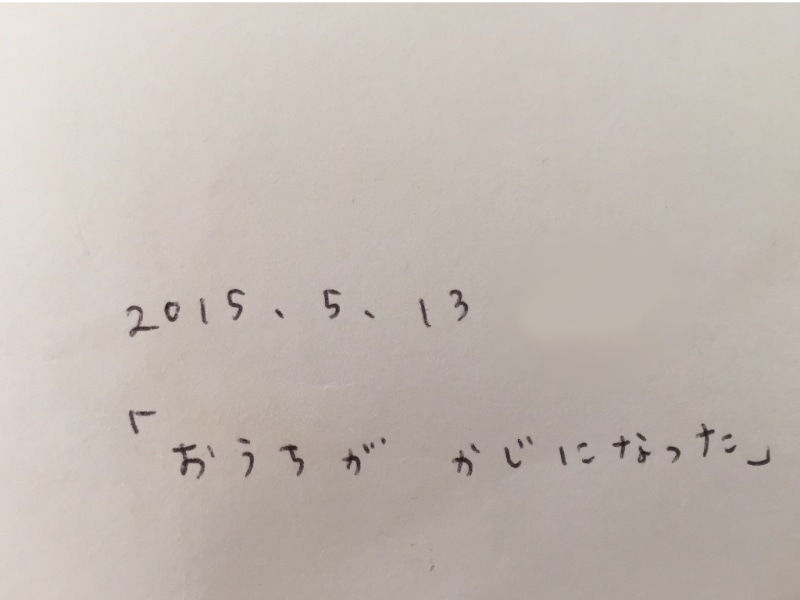 2015、5、13
「おうちが かじになった」